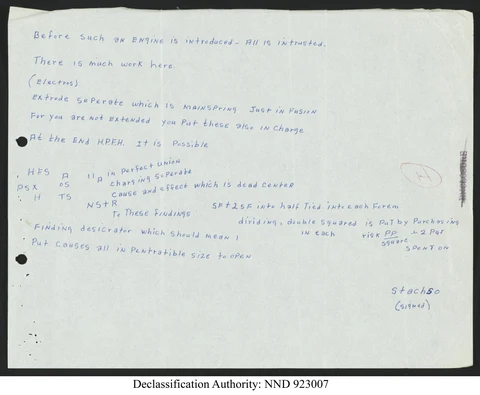 Before such an Engine is introduced - All is intrusted.
There is much work here.
(Electros)
Extrode Seperate which is mainspring Just in Fusion
For you are not Extended you Put these also in Charge
At the End H.P.F.H. It is Possible
HFS A 11A in Perfect union
PSX nS charging Seperate
H TS cause and effect which is dead center
NS+R SF+2SF into half Tied into each Forem
To These findings dividing, double squared is Put by Purchasing
Finding desicrator which should mean 1 in each risk PP + 2 Par
square spent on
Put causes all in Penetratible size to open
Stachso
(signed)
Declassification Authority: NND 923007